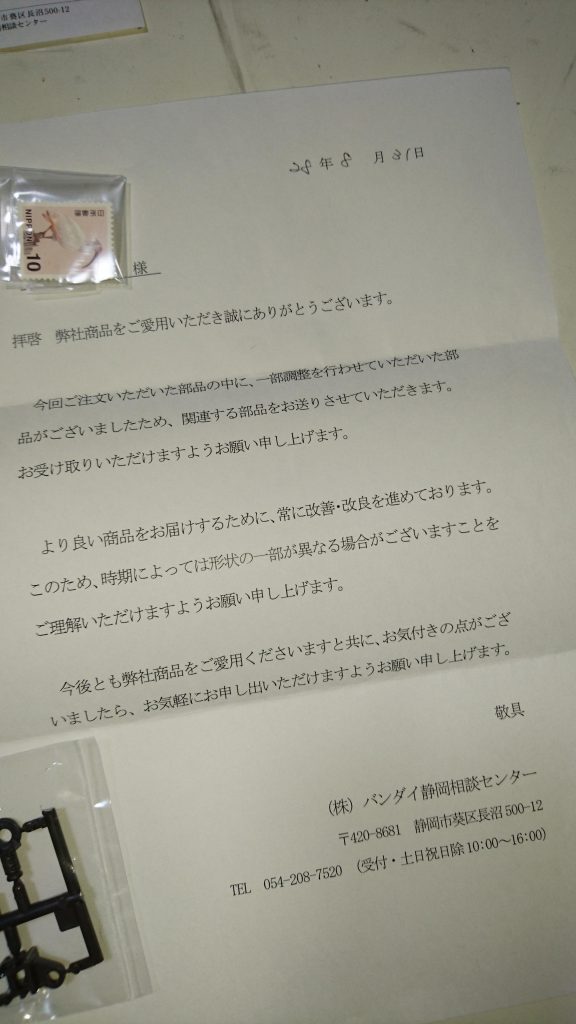 市葵区長沼500-12
相談センター
28年8月31日
日本郵便
NIPPON
10
様
拝啓　弊社商品をご愛用いただき誠にありがとうございます。
今回ご注文いただいた部品の中に、一部調整を行わせていただいた部
品がございましたため、関連する部品をお送りさせていただきます。
お受け取りいただけますようお願い申し上げます。
より良い商品をお届けするために、常に改善・改良を進めております。
このため、時期によっては形状の一部が異なる場合がございますことを
ご理解いただけますようお願い申し上げます。
今後とも弊社商品をご愛用くださいますと共に、お気付きの点がござ
いましたら、お気軽にお申し出いただけますようお願い申し上げます。
敬具
（株）バンダイ静岡相談センター
〒420-8681　静岡市葵区長沼500-12
TEL　054-208-7520　（受付・土日祝日除10:00～16:00）